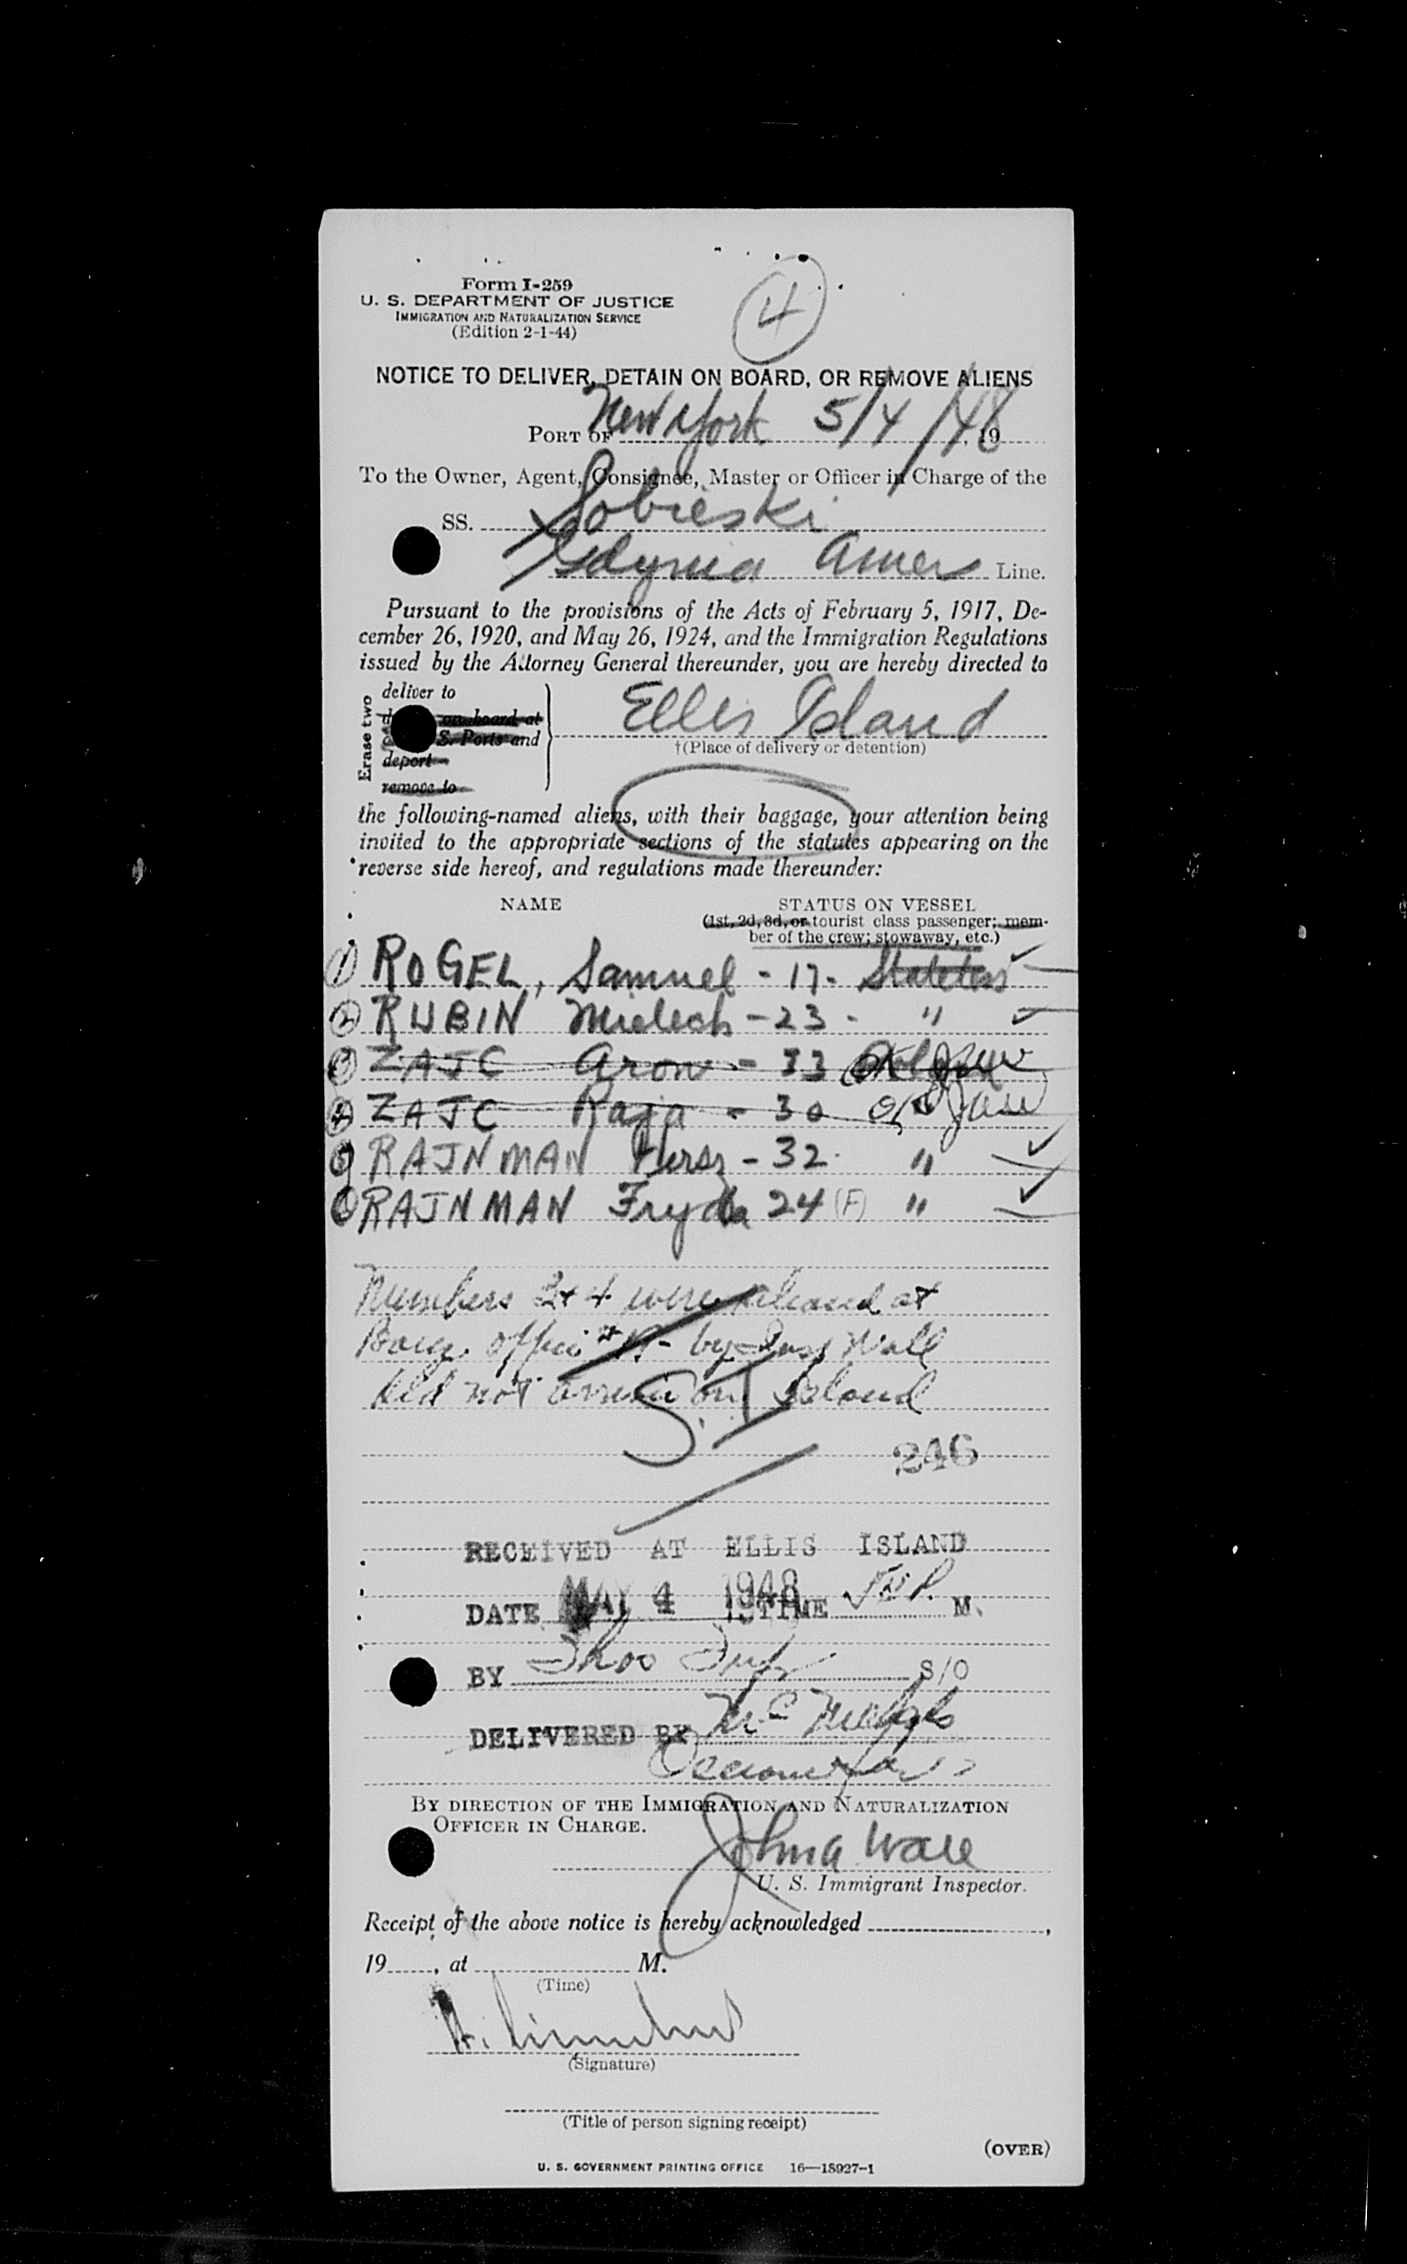 Form I-259
U. S. DEPARTMENT OF JUSTICE
IMMIGRATION AND NATURALIZATION SERVICE
(Edition 2-1-44)
4
NOTICE TO DELIVER, DETAIN ON BOARD, OR REMOVE ALIENS
PORT OF New York 5/4/48, 19
To the Owner, Agent, Consignee, Master or Officer in Charge of the
SS. Sobieski
Gdynia Amer Line.
Pursuant to the provisions of the Acts of February 5, 1917, De-
cember 26, 1920, and May 26, 1924, and the Immigration Regulations
issued by the Attorney General thereunder, you are hereby directed to
Erase two
deliver to
on board at
S. Ports and
deport
remove to
Ellis Island
†(Place of delivery or detention)
the following-named aliens, with their baggage, your attention being
invited to the appropriate sections of the statutes appearing on the
reverse side hereof, and regulations made thereunder:
NAME STATUS ON VESSEL
(1st, 2d, 3d, or tourist class passenger; mem-
ber of the crew; stowaway, etc.)
1 ROGEL, Samuel - 17 -
2 RUBIN Mielech - 23 - "
3 ZAJC Aron - 33 OK
4 ZAJC Raja - 30 OK
5 RAJNMAN Hersz - 32 "
6 RAJNMAN Fryda 24 (F) "
Numbers 3 + 4 were released at
Barge office by Insp Wall
did not arrive on Island
S.I
246
RECEIVED AT ELLIS ISLAND
DATE MAY 4 1948 TIME M.
BY S/O
DELIVERED BY
BY DIRECTION OF THE IMMIGRATION AND NATURALIZATION
OFFICER IN CHARGE.
John A Wall
U. S. Immigrant Inspector.
Receipt of the above notice is hereby acknowledged ,
19 , at M.
(Time)
(Signature)
(Title of person signing receipt)
(OVER)
U. S. GOVERNMENT PRINTING OFFICE 16—18927-1